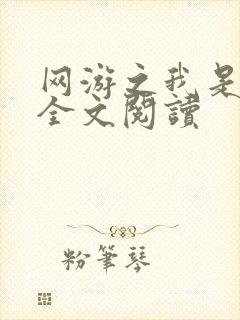 网游之我是
全文閱讀
粉筆琴